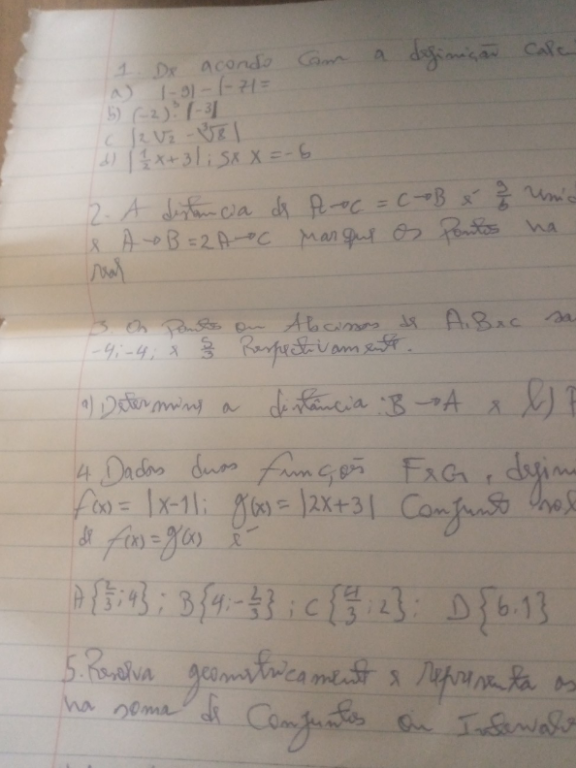 1. De acordo com a definição calc
a) |-9| - |-7| =
b) (-2)³ · |-3|
c |2√2 - ∛8|
d) |½x + 3|; se x = -6
2. A distância de A→C = C→B é 9/6 unid
e A→B = 2A→C marque os pontos na
real
3. Os pontos ou Abcissas de A, B e c sa
-4; -4; e 5/3 Respectivamente.
a) Determine a distância: B→A e b)
4 Dadas duas funções F e G, defini
f(x) = |x-1|; g(x) = |2x+3| Conjunto sol
de f(x) = g(x) é
A {2/3; 4}; B {4; -2/3}; C {4/3; 2}; D {6.1}
5. Resolva geometricament e representa os
na soma de Conjuntos ou Intervalo